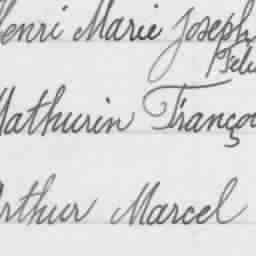 Henri Marie Joseph
Féli
Mathurin Françoi
Arthur Marcel